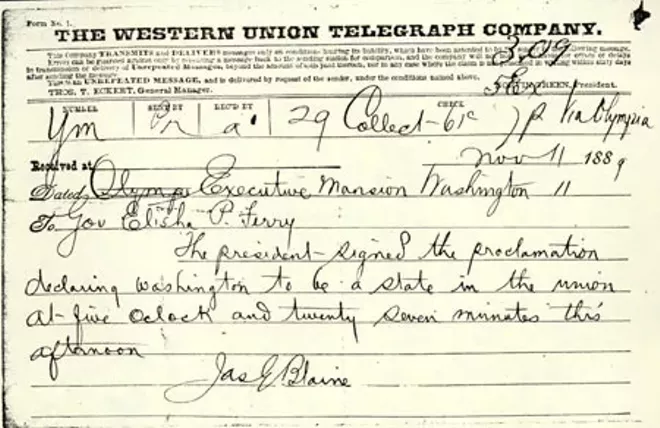 Form No. 1.
THE WESTERN UNION TELEGRAPH COMPANY.
This Company TRANSMITS and DELIVERS messages only on conditions limiting its liability, which have been assented to by the following message.
Errors can be guarded against only by repeating a message back to the sending station for comparison, and the company will not errors or delays
in transmission or delivery of Unrepeated Messages, beyond the amount of tolls paid thereon, nor in any case where the claim is not presented in writing within sixty days
after sending the message.
This is an UNREPEATED MESSAGE, and is delivered by request of the sender, under the conditions named above.
THOS. T. ECKERT, General Manager. GREEN, President.
NUMBER SENT BY REC'D BY CHECK
a 29 Collect-61c Via Olympia
Received at Nov 11 1889
Dated Executive Mansion Washington 11
To Gov Elisha P. Ferry
The president signed the proclamation
declaring washington to be a state in the union
at five oclock and twenty seven minutes this
afternoon
Jas G Blaine